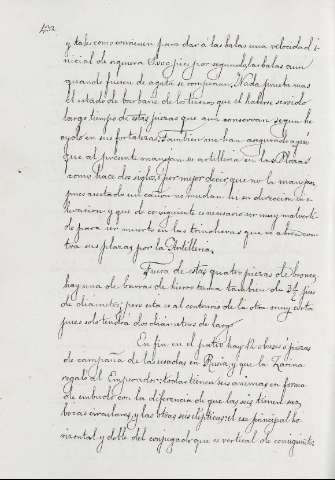 y tales como convienen para dar á las balas una velocidad i
nicial de siquiera 800 pies por segundo, las balas aun
quando fuesen de agata se romperian. Nada prueba mas
el estado de barbarie de los turcos que el haberse servido
largo tiempo de estas piezas que aun conservan segun he
oydo en sus fortalezas. Tambien me han asegurado a
que al presente manejan su artilleria en las Plazas
como hace dos siglos, ó por mejor decir que no la manejan,
pues asestado un cañon no mudan ni su direccion ni e
levacion y que de consiguiente es necesario ser muy
de para ser muerto en las trincheras que se abren con
tra sus plazas por la Artilleria.
Fuera de estas quatro piezas de bronce,
hay una de barras de hierro tambien de 3½ pies
de diámetro; pero esta es al contrario de la otra muy corta
pues solo tendrá dos diámetros de largo.
En fin en el patio hay 12 obuses ó piezas
de campaña de las usadas en Rusia y que la Zarina
regaló al Emperador: todas tienen sus animas en forma
de embudo con la diferencia de que las seis tienen sus
bocas circulares, y las otras seis elipticas: el exe principal ho
rizontal y doble del conjugado que es vertical de consiguiente